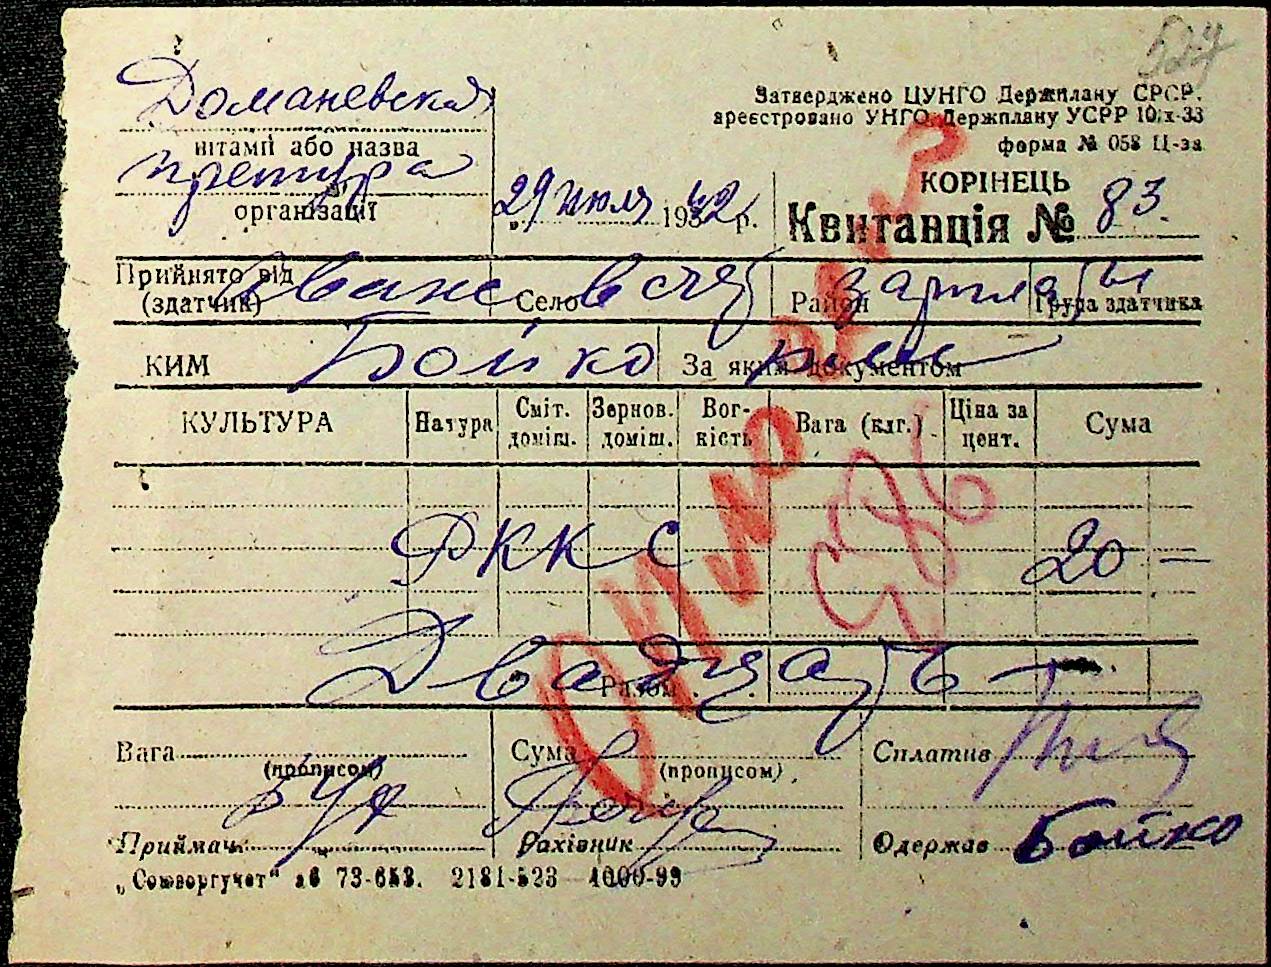 527
Доманевская
Затверджено ЦУНГО Держплану СРСР.
штамп або назва
ареєстровано УНГО Держплану УСРР 10;х-33
форма № 058 Ц-за
претура
організації
29 июля 1942 р.
КОРІНЕЦЬ
Квитанція № 83.
Прийнято від Аванс Село в счет Район зарплаты Група здатчика
(здатчик)
КИМ Бойко За яким документом
КУЛЬТУРА Натура Сміт. доміш. Зернов. доміш. Вогкість Вага (клг.) Ціна за цент. Сума
РККС 20 —
586
Двадцать —
Разом
Вага Сума Сплатив
(прописом) (прописом)
Приймач Рахівник Одержав Бойко
„Союзоргучет" зб 73-653. 2181-523 4000-99